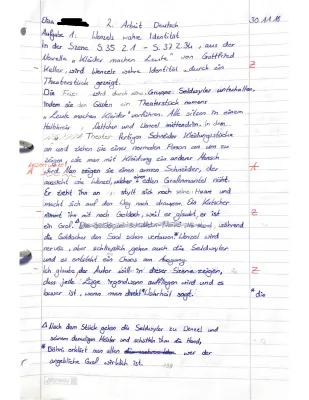 2. Arbeit Deutsch 30.11.16
Aufgabe 1. Wenzels wahre Identität
In der Szene S.35 Z.1 - S.37 Z.34, aus der
Novelle „Kleider machen Leute" von Gottfried
Keller, wird Wenzels wahre Identität durch ein Z
Theaterstück gezeigt.
Die wird durch Gruppe Seldwyler unterhalten,
indem sie den Gästen ein Theaterstück namens
„Leute machen Kleider" vorführen. Alle sitzen in einem
Halbkreis, Nettchen und Wenzel mittendrin, in dem
Theater fertigen Schneider Kleidungsstücke
an und ziehen sie einer normalen Person an um zu
zeigen, wie man mit Kleidung ein anderer Mensch
wird. Man zeigen sie einen armen Schneider, der
aussieht wie Wenzel, wobei edlen Grafenmantel näht.
Er zieht ihn an, stylt sich noch seine Haare und
macht sich auf den Weg nach draußen. Ein Kutscher
nimmt ihn mit nach Goldach, weil er glaubt, er ist Z
ein Graf. während
die Goldacher den Saal schon verlassen. Wenzel wird
nervös, aber schließlich gehen auch die Seldwyler
und es entsteht ein Chaos am Ausgang.
Ich glaube der Autor will in dieser Szene zeigen, Z
dass jede Lüge irgendwann auffliegen wird und es
besser ist, wenn man direkt Wahrheit sagt. * die
Δ Nach dem Stück gehen die Seldwyler zu Wenzel und
seinem damaligen Meister und schütteln ihm die Hand,
* Böhni erklärt nun allen wer der
angebliche Graf wirklich ist.